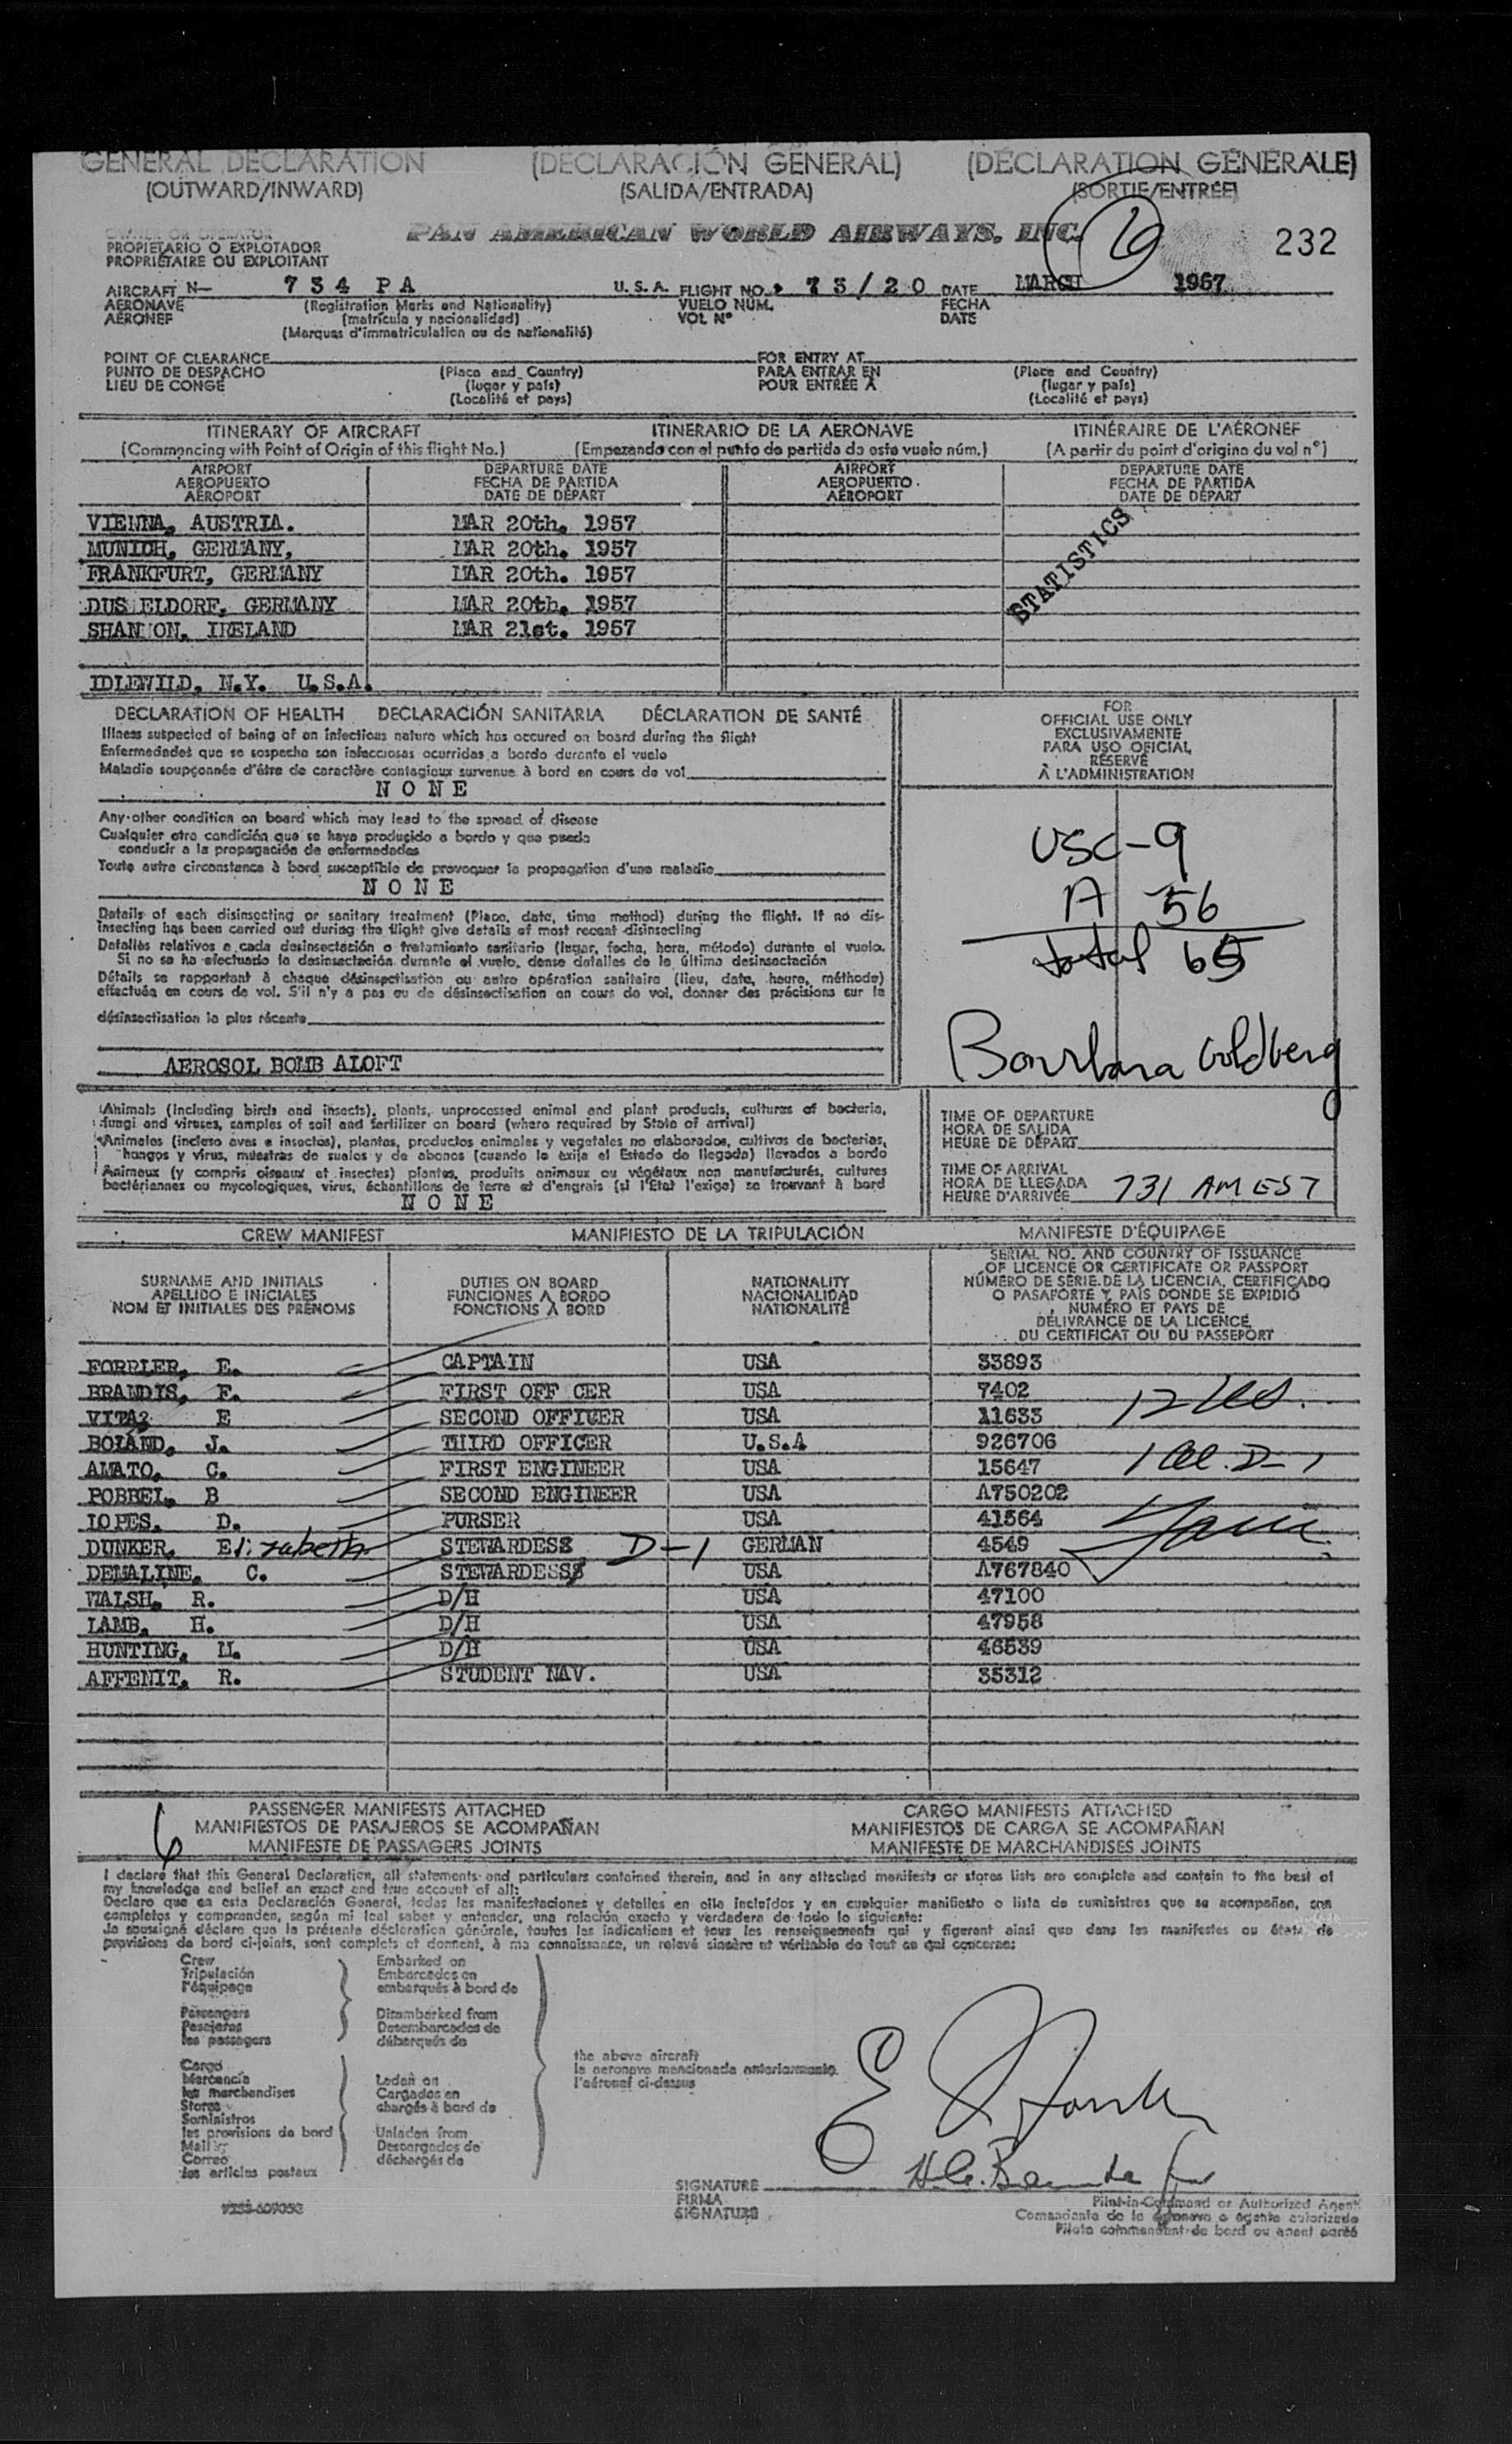 GENERAL DECLARATION (DECLARACIÓN GENERAL) (DÉCLARATION GÉNÉRALE)
(OUTWARD/INWARD) (SALIDA/ENTRADA) (SORTIE/ENTRÉE)
OWNER OR OPERATOR
PROPIETARIO O EXPLOTADOR
PROPRIÉTAIRE OU EXPLOITANT
PAN AMERICAN WORLD AIRWAYS, INC. 6 232
AIRCRAFT N- 734 PA U.S.A. FLIGHT NO. 73/20 DATE MARCH 1957
AÉRONAVE (Registration Marks and Nationality) VUELO NÚM. FECHA
AÉRONEF (matrícula y nacionalidad) VOL N° DATE
(Marques d'immatriculation ou de nationalité)
POINT OF CLEARANCE FOR ENTRY AT
PUNTO DE DESPACHO (Place and Country) PARA ENTRAR EN (Place and Country)
LIEU DE CONGÉ (lugar y país) POUR ENTRÉE À (lugar y país)
(Localité et pays) (Localité et pays)
ITINERARY OF AIRCRAFT ITINERARIO DE LA AERONAVE ITINÉRAIRE DE L'AÉRONEF
(Commencing with Point of Origin of this flight No.) (Empezando con el punto de partida de este vuelo núm.) (A partir du point d'origine du vol n°)
AIRPORT DEPARTURE DATE AIRPORT DEPARTURE DATE
AEROPUERTO FECHA DE PARTIDA AEROPUERTO FECHA DE PARTIDA
AÉROPORT DATE DE DÉPART AÉROPORT DATE DE DÉPART
VIENNA, AUSTRIA. MAR 20th. 1957
MUNICH, GERMANY, MAR 20th. 1957
FRANKFURT, GERMANY MAR 20th. 1957
DUS ELDORF, GERMANY MAR 20th. 1957
SHANNON, IRELAND MAR 21st. 1957
STATISTICS
IDLEWILD, N.Y. U.S.A.
DECLARATION OF HEALTH DECLARACIÓN SANITARIA DÉCLARATION DE SANTÉ
Illness suspected of being of an infectious nature which has occured on board during the flight
Enfermedades que se sospecha son infecciosas ocurridas a bordo durante el vuelo
Maladie soupçonnée d'être de caractère contagieux survenue à bord en cours de vol
NONE
Any other condition on board which may lead to the spread of disease
Cualquier otra condición que se haya producido a bordo y que pueda
conducir a la propagación de enfermedades
Toute autre circonstance à bord susceptible de provoquer la propagation d'une maladie
NONE
Details of each disinsecting or sanitary treatment (Place, date, time method) during the flight. If no dis-
insecting has been carried out during the flight give details of most recent disinsecting
Detalles relativos a cada desinsectación o tratamiento sanitario (lugar, fecha, hora, método) durante el vuelo.
Si no se ha efectuado la desinsectación durante el vuelo, dense detalles de la última desinsectación
Détails se rapportant à chaque désinsectisation ou autre opération sanitaire (lieu, date, heure, méthode)
effectuée en cours de vol. S'il n'y a pas eu de désinsectisation en cours de vol, donner des précisions sur la
désinsectisation la plus récente
AEROSOL BOMB ALOFT
FOR
OFFICIAL USE ONLY
EXCLUSIVAMENTE
PARA USO OFICIAL
RÉSERVÉ
À L'ADMINISTRATION
USC-9
A 56
total 65
Barbara Goldberg
Animals (including birds and insects), plants, unprocessed animal and plant products, cultures of bacteria,
fungi and viruses, samples of soil and fertilizer on board (where required by State of arrival)
Animales (incluso aves e insectos), plantas, productos animales y vegetales no elaborados, cultivos de bacterias,
hongos y virus, muestras de suelos y de abonos (cuando lo exija el Estado de llegada) llevados a bordo
Animaux (y compris oiseaux et insectes) plantes, produits animaux ou végétaux non manufacturés, cultures
bactériennes ou mycologiques, virus, échantillons de terre et d'engrais (si l'Etat l'exige) se trouvant à bord
NONE
TIME OF DEPARTURE
HORA DE SALIDA
HEURE DE DÉPART
TIME OF ARRIVAL
HORA DE LLEGADA
HEURE D'ARRIVÉE 731 AM EST
CREW MANIFEST MANIFIESTO DE LA TRIPULACIÓN MANIFESTE D'ÉQUIPAGE
SURNAME AND INITIALS
APELLIDO E INICIALES
NOM ET INITIALES DES PRÉNOMS
DUTIES ON BOARD
FUNCIONES A BORDO
FONCTIONS À BORD
NATIONALITY
NACIONALIDAD
NATIONALITÉ
SERIAL NO. AND COUNTRY OF ISSUANCE
OF LICENCE OR CERTIFICATE OR PASSPORT
NÚMERO DE SERIE DE LA LICENCIA, CERTIFICADO
O PASAPORTE Y PAÍS DONDE SE EXPIDIÓ
NUMÉRO ET PAYS DE
DÉLIVRANCE DE LA LICENCE
DU CERTIFICAT OU DU PASSEPORT
FORRLER, E. CAPTAIN USA 33893
BRANDIS, F. FIRST OFF CER USA 7402
VITAZ E SECOND OFFICER USA 11633
BOLAND, J. THIRD OFFICER U.S.A 926706
AMATO, C. FIRST ENGINEER USA 15647
POBBEL, B SECOND ENGINEER USA A750202
LOPES, D. PURSER USA 41564
DUNKER, Elizabeth STEWARDESS D-1 GERMAN 4549
DEMALINE, C. STEWARDESS USA A767840
WALSH, R. D/H USA 47100
LAMB, H. D/H USA 47958
HUNTING, M. D/H USA 46539
AFFENIT, R. STUDENT NAV. USA 35312
6
PASSENGER MANIFESTS ATTACHED CARGO MANIFESTS ATTACHED
MANIFIESTOS DE PASAJEROS SE ACOMPAÑAN MANIFIESTOS DE CARGA SE ACOMPAÑAN
MANIFESTE DE PASSAGERS JOINTS MANIFESTE DE MARCHANDISES JOINTS
I declare that this General Declaration, all statements and particulars contained therein, and in any attached manifests or stores lists are complete and contain to the best of
my knowledge and belief an exact and true account of all:
Declaro que en esta Declaración General, todas las manifestaciones y detalles en ella incluídos y en cualquier manifiesto o lista de suministros que se acompañan, son
completos y comprenden, según mi leal saber y entender, una relación exacta y verdadera de todo lo siguiente:
Je soussigné déclare que la présente déclaration générale, toutes les indications et tous les renseignements qui y figerent ainsi que dans les manifestes ou états de
provisions de bord ci-joints, sont complets et donnent, à ma connaissance, un relevé sincère et véritable de tout ce qui concerne:
Crew Embarked on
Tripulación Embarcados en
l'équipage embarqués à bord de
Passengers Disembarked from
Pasajeros Desembarcados de
les passagers débarqués de
the above aircraft
la aeronave mencionada anteriormente
l'aéronef ci-dessus
Cargo
Mercancía Laden on
les marchandises Cargados en
Stores chargés à bord de
Suministros
les provisions de bord Unladen from
Mail Descargados de
Correo déchargés de
les articles postaux
SIGNATURE
FIRMA
SIGNATURE
Pilot-in-Command or Authorized Agent
Comandante de la aeronave o agente autorizado
Pilote commandant de bord ou agent agréé